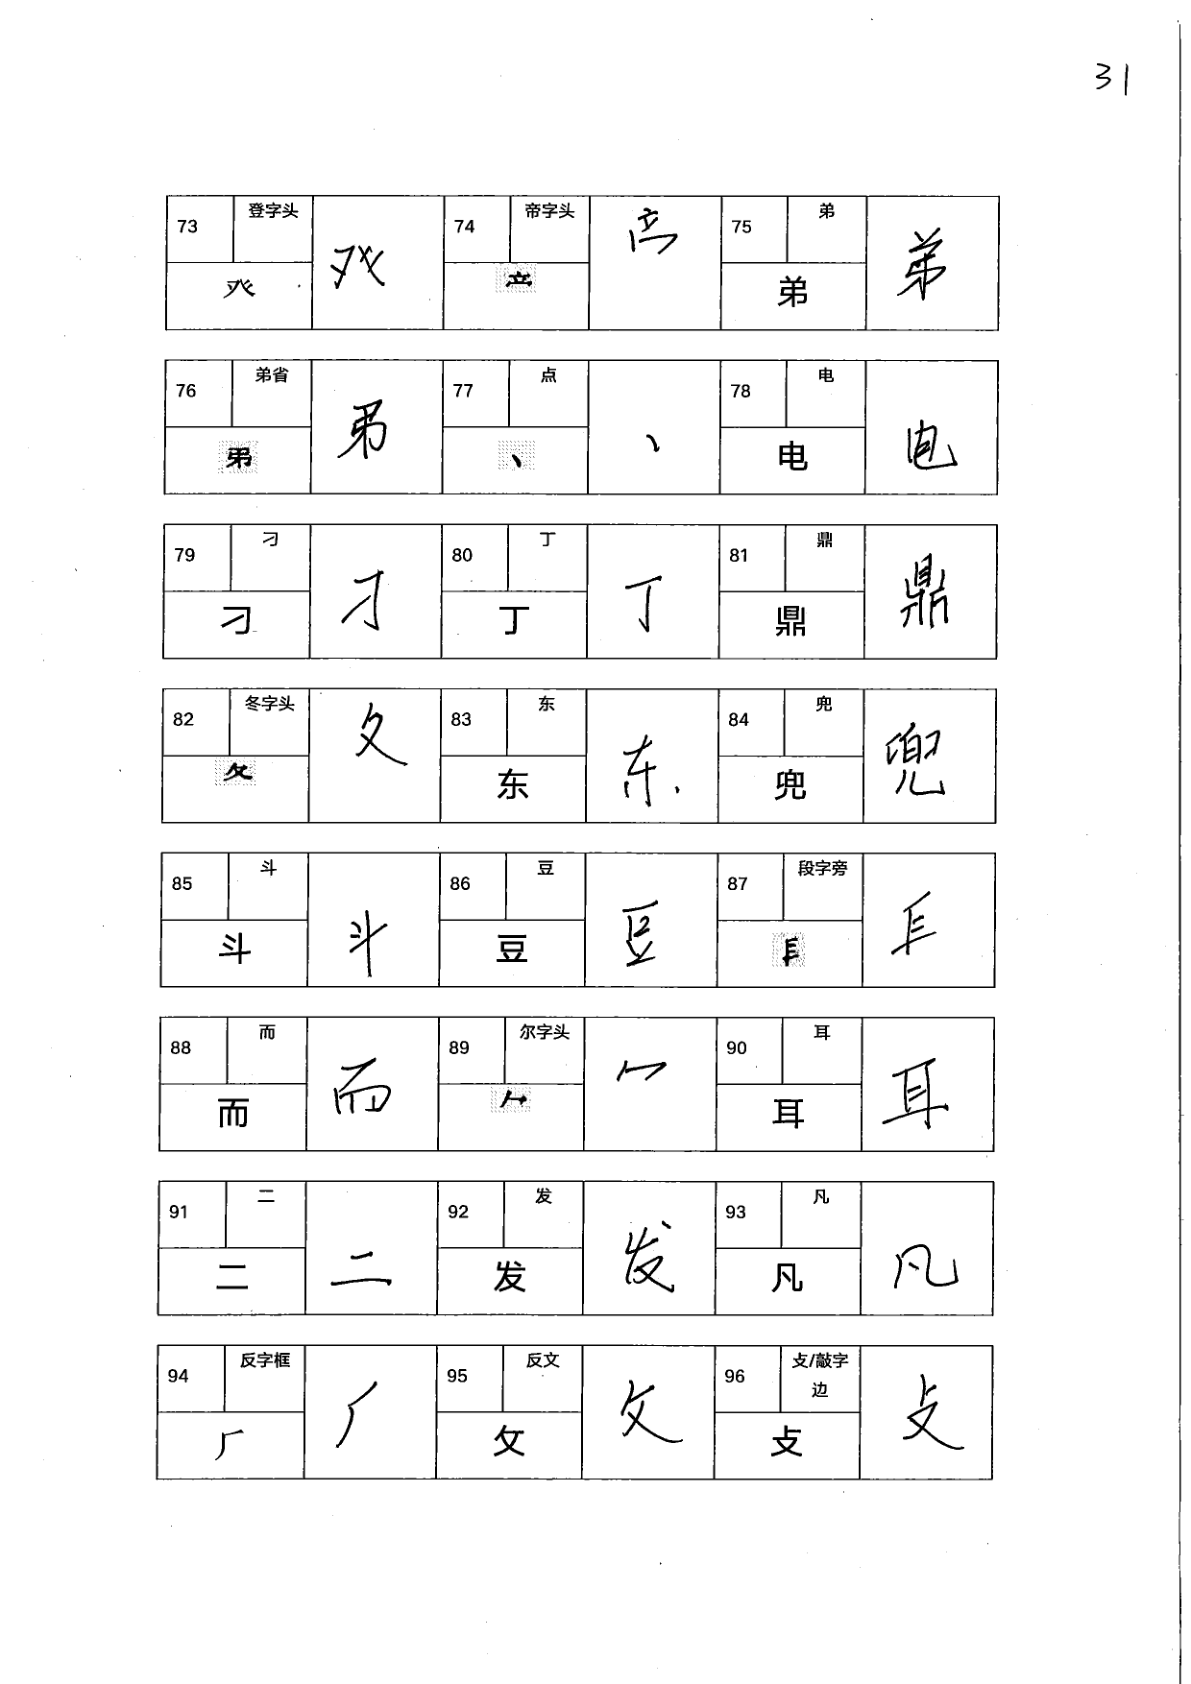 31
73 登字头 癶 癶 74 帝字头 75 弟 弟 弟
76 弟省 77 点 丶 丶 78 电 电 电
79 刁 刁 刁 80 丁 丁 丁 81 鼎 鼎 鼎
82 冬字头 夂 夂 83 东 东 东 84 兜 兜 兜
85 斗 斗 斗 86 豆 豆 豆 87 段字旁
88 而 而 而 89 尔字头 90 耳 耳 耳
91 二 二 二 92 发 发 发 93 凡 凡 凡
94 反字框 𠂆 𠂆 95 反文 攵 攵 96 攴/敲字边 攴 攴